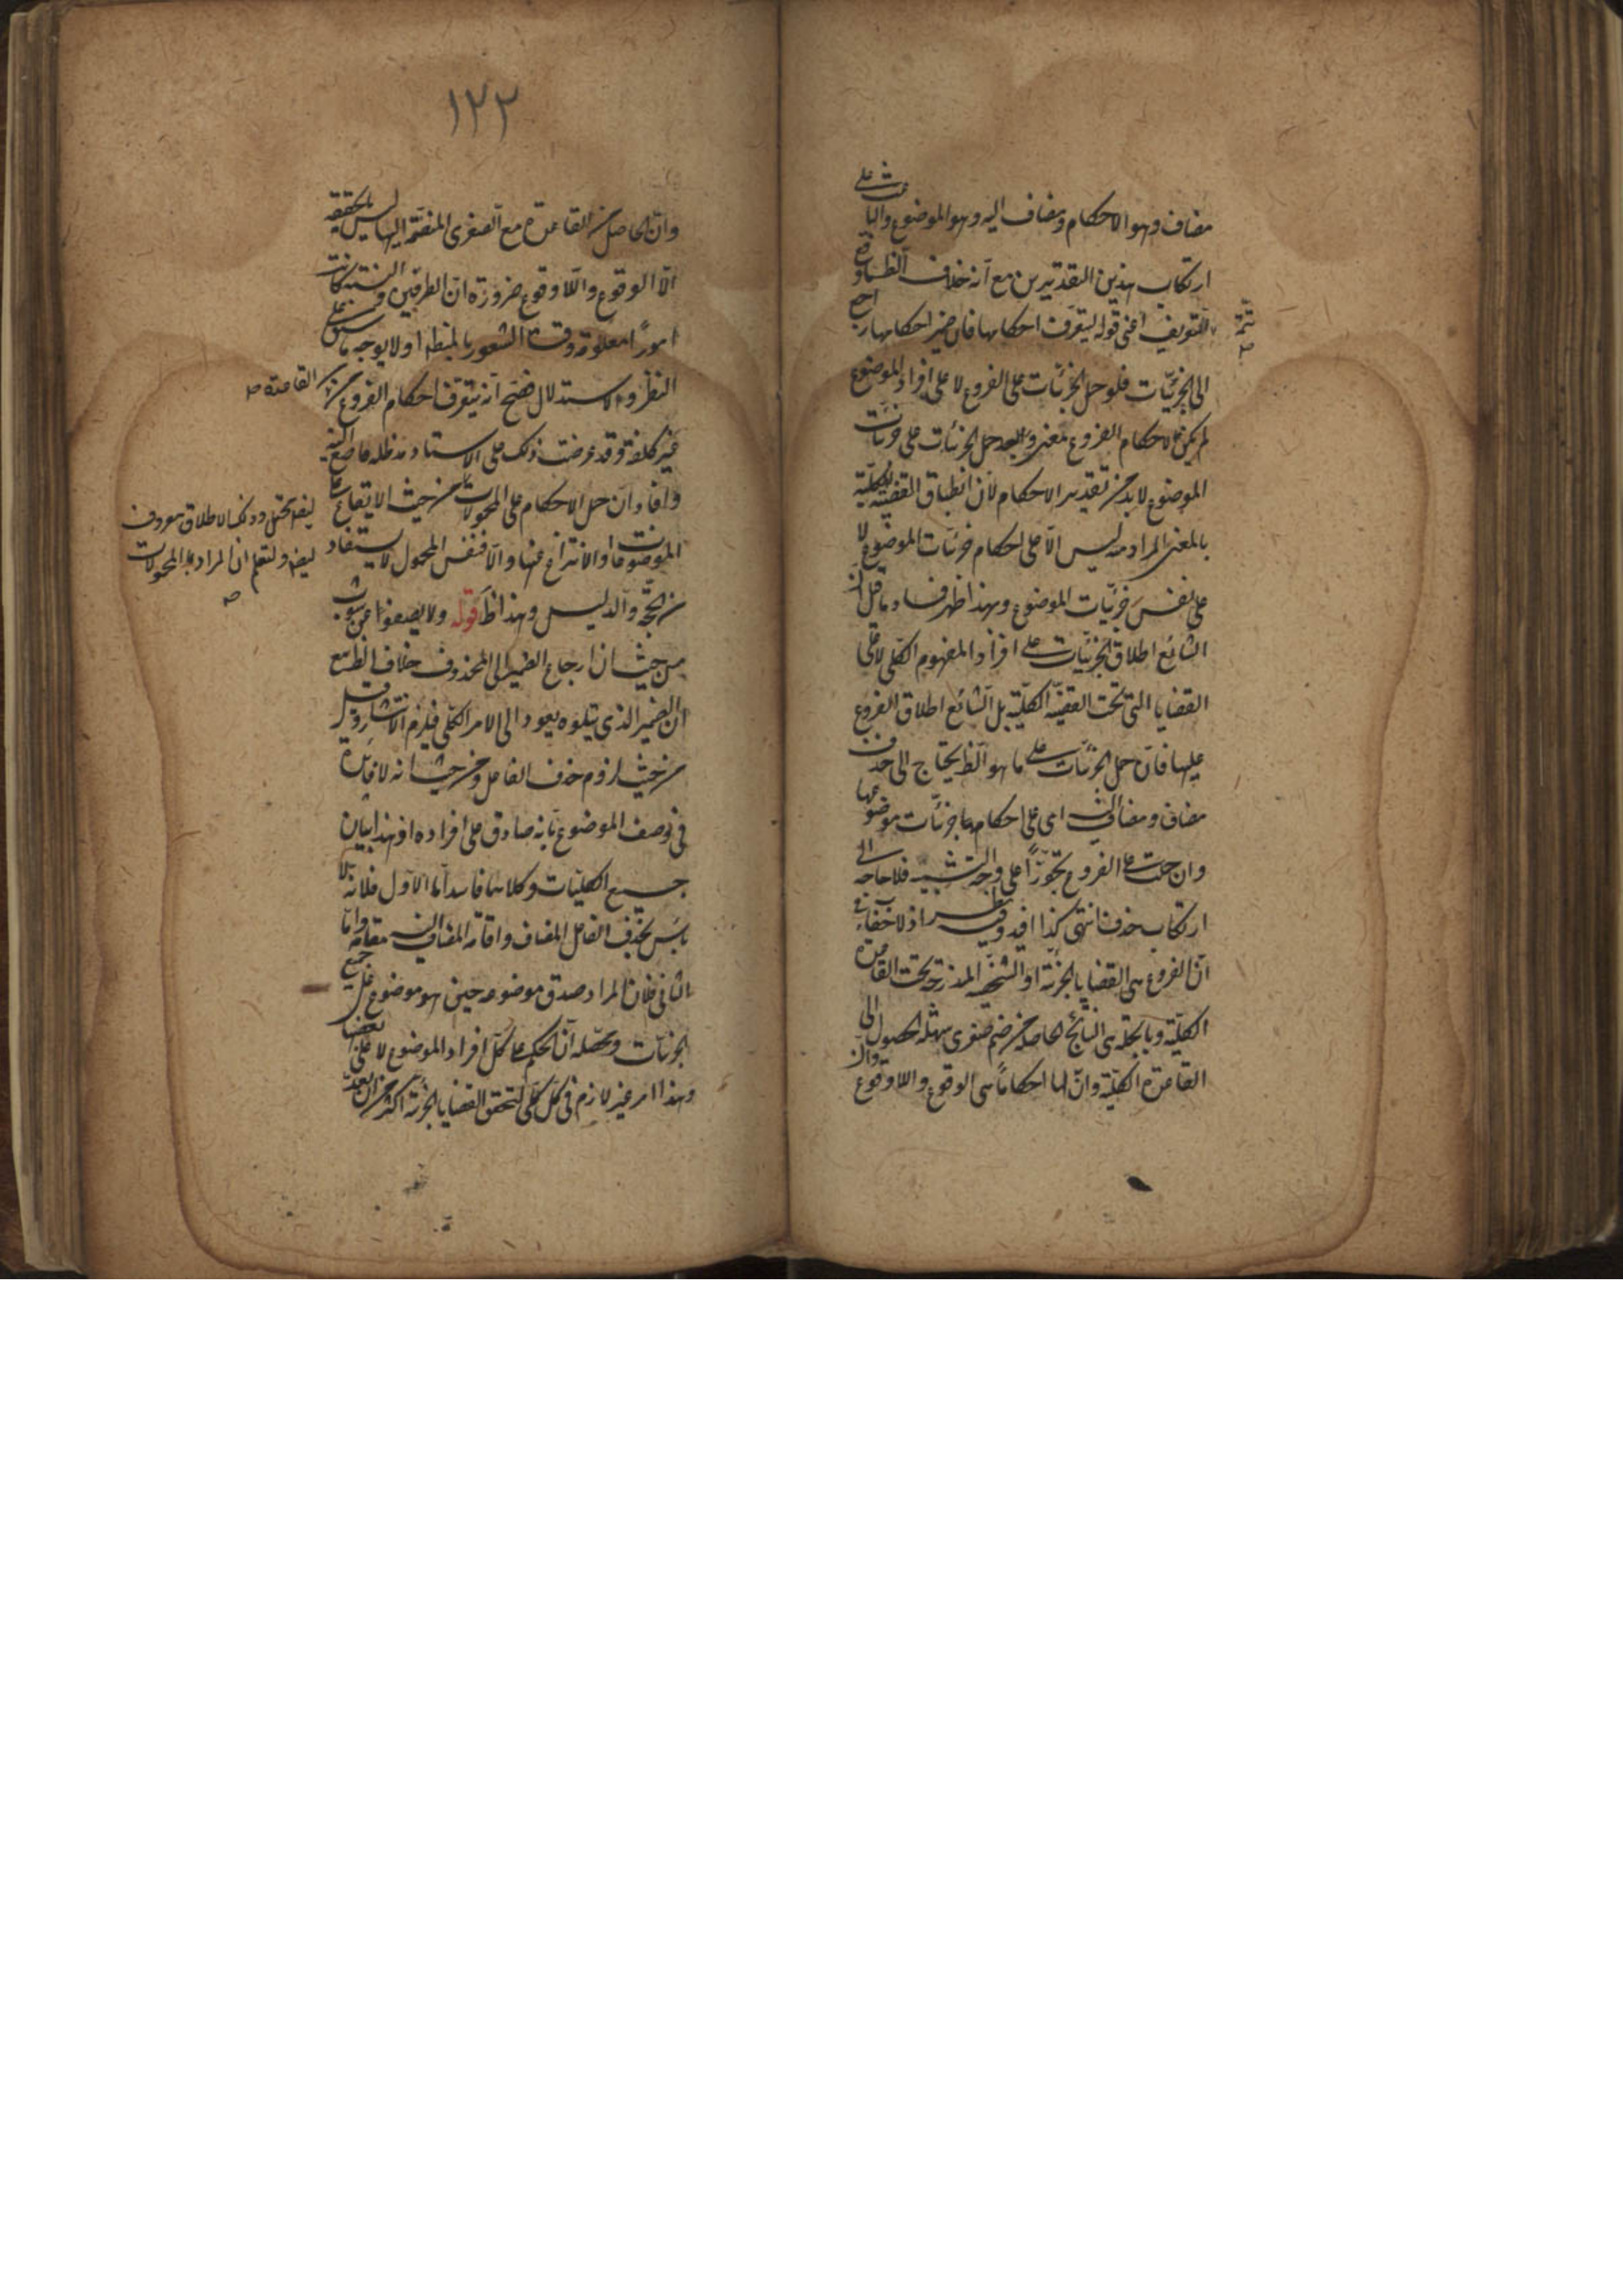 مضاف وهو الاحكام ومضاف اليه وهو الموضوع والباعث على
ارتكاب هذين التقديرين مع انه خلاف الظ ما وقع
تتمة ص
للتعريف اعنى قوله ليتعرف احكامها فان ضمير احكامها راجع
الى الجزئيات فلو حمل الجزئيات على الفروع لا على افراد الموضوع
لم يكن لاحكام الفروع معنى وبعد حمل الجزئيات على جزئيات
الموضوع لابد من تقدير الاحكام لان انطباق القضية الكلية
بالمعنى المراد منه ليس الا على احكام جزئيات الموضوع لا
على نفس جزئيات الموضوع وبهذا ظهر فساد ما قيل ان
الشائع اطلاق الجزئيات على افراد المفهوم الكلى لا على
القضايا التى تحت القضية الكلية بل الشائع اطلاق الفروع
عليها فان حمل الجزئيات على ما هو الظ يحتاج الى حذف
مضاف ومضاف اليه اى على احكام جزئيات موضوعها
وان حملت على الفروع تجوزا على وجه التشبيه فلا حاجه الى
ارتكاب حذف انتهى كذا افيد وفيه نظر اذ لا خفاء في
ان الفروع هى القضايا الجزئية او الشخصية المندرجة تحت القاعدة
الكلية وبالجملة هى النتائج الحاصلة من ضم صغرى سهلة الحصول الى
القاعدة الكلية وان لها احكاما هى الوقوع واللاوقوع وان
١٢٢
وان الحاصل من القاعدة مع الصغرى المنضمة اليها ليس بالحقيقه
الا الوقوع واللاوقوع ضرورة ان الطرفين والنسبة كانت
امورا معلومة وقت الشعور بالمط اولا بوجه ما سبق على
النظر والاستدلال فصح انه يتعرف احكام الفروع من
القاعدة ص
غير كلفة وقد عرضت ذلك على الاستاد مد ظله فاصغى اليه
وافاد ان حمل الاحكام على المحمولات من حيث الايقاع على
الموضوعات او الانتزاع عنها والا فنفس المحمول لا يستفاد
ايضا يحتمل وذلك الاطلاق معروف
ايضا ولتعلم ان المراد بالمحمولات
ص
من الحجة والدليل وهذا ظ قوله ولا يصغوا عن شوب
من حيث ان ارجاع الضمير الى المحذوف خلاف الظ مع
ان الضمير الذى يتلوه يعود الى الامر الكلى فيلزم الانتشار وقيل
من حيث لزوم حذف الفاعل ومن حيث انه لا فائدة
في وصف الموضوع بانه صادق على افراده اذ هذا بيان
جميع الكليات وكلاهما فاسد اما الاول فلانه لا
بأس بحذف الفاعل المضاف واقامة المضاف اليه مقامه واما
الثانى فلان المراد صدق موضوعه حين هو موضوع على جميع
الجزئيات ومحصله ان الحكم على كل افراد الموضوع لا على بعضها
وهذا امر غير لازم في كل كلى لتحقق القضايا الجزئية اكثر من ان يعد